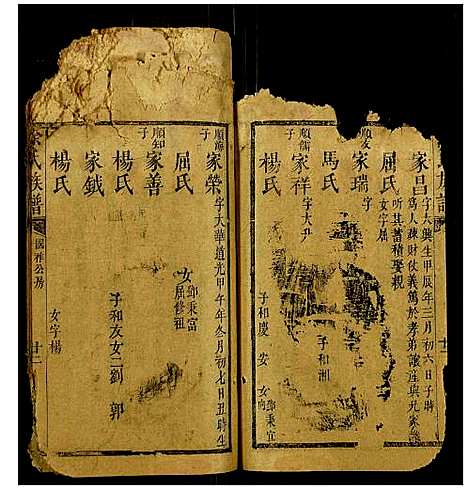 家昌
字大興生甲辰年三月初六日子時
為人疎財仗義篤於孝弟
所其蓄積娶親
屈氏
女字屈
順友
子
家瑞
字
馬氏
子和洲
順儒
子
家祥
字大尹
楊氏
子和慶
安
女
鄧秉宜
順
子
家榮
字大華道光甲午年叁月初七日丑時生
屈氏
女
鄧秉富
屈修祖
順知
子
家善
楊氏
子和友女二劉
郭
家鉞
楊氏
女字楊
氏族譜
國雅公房
廿二